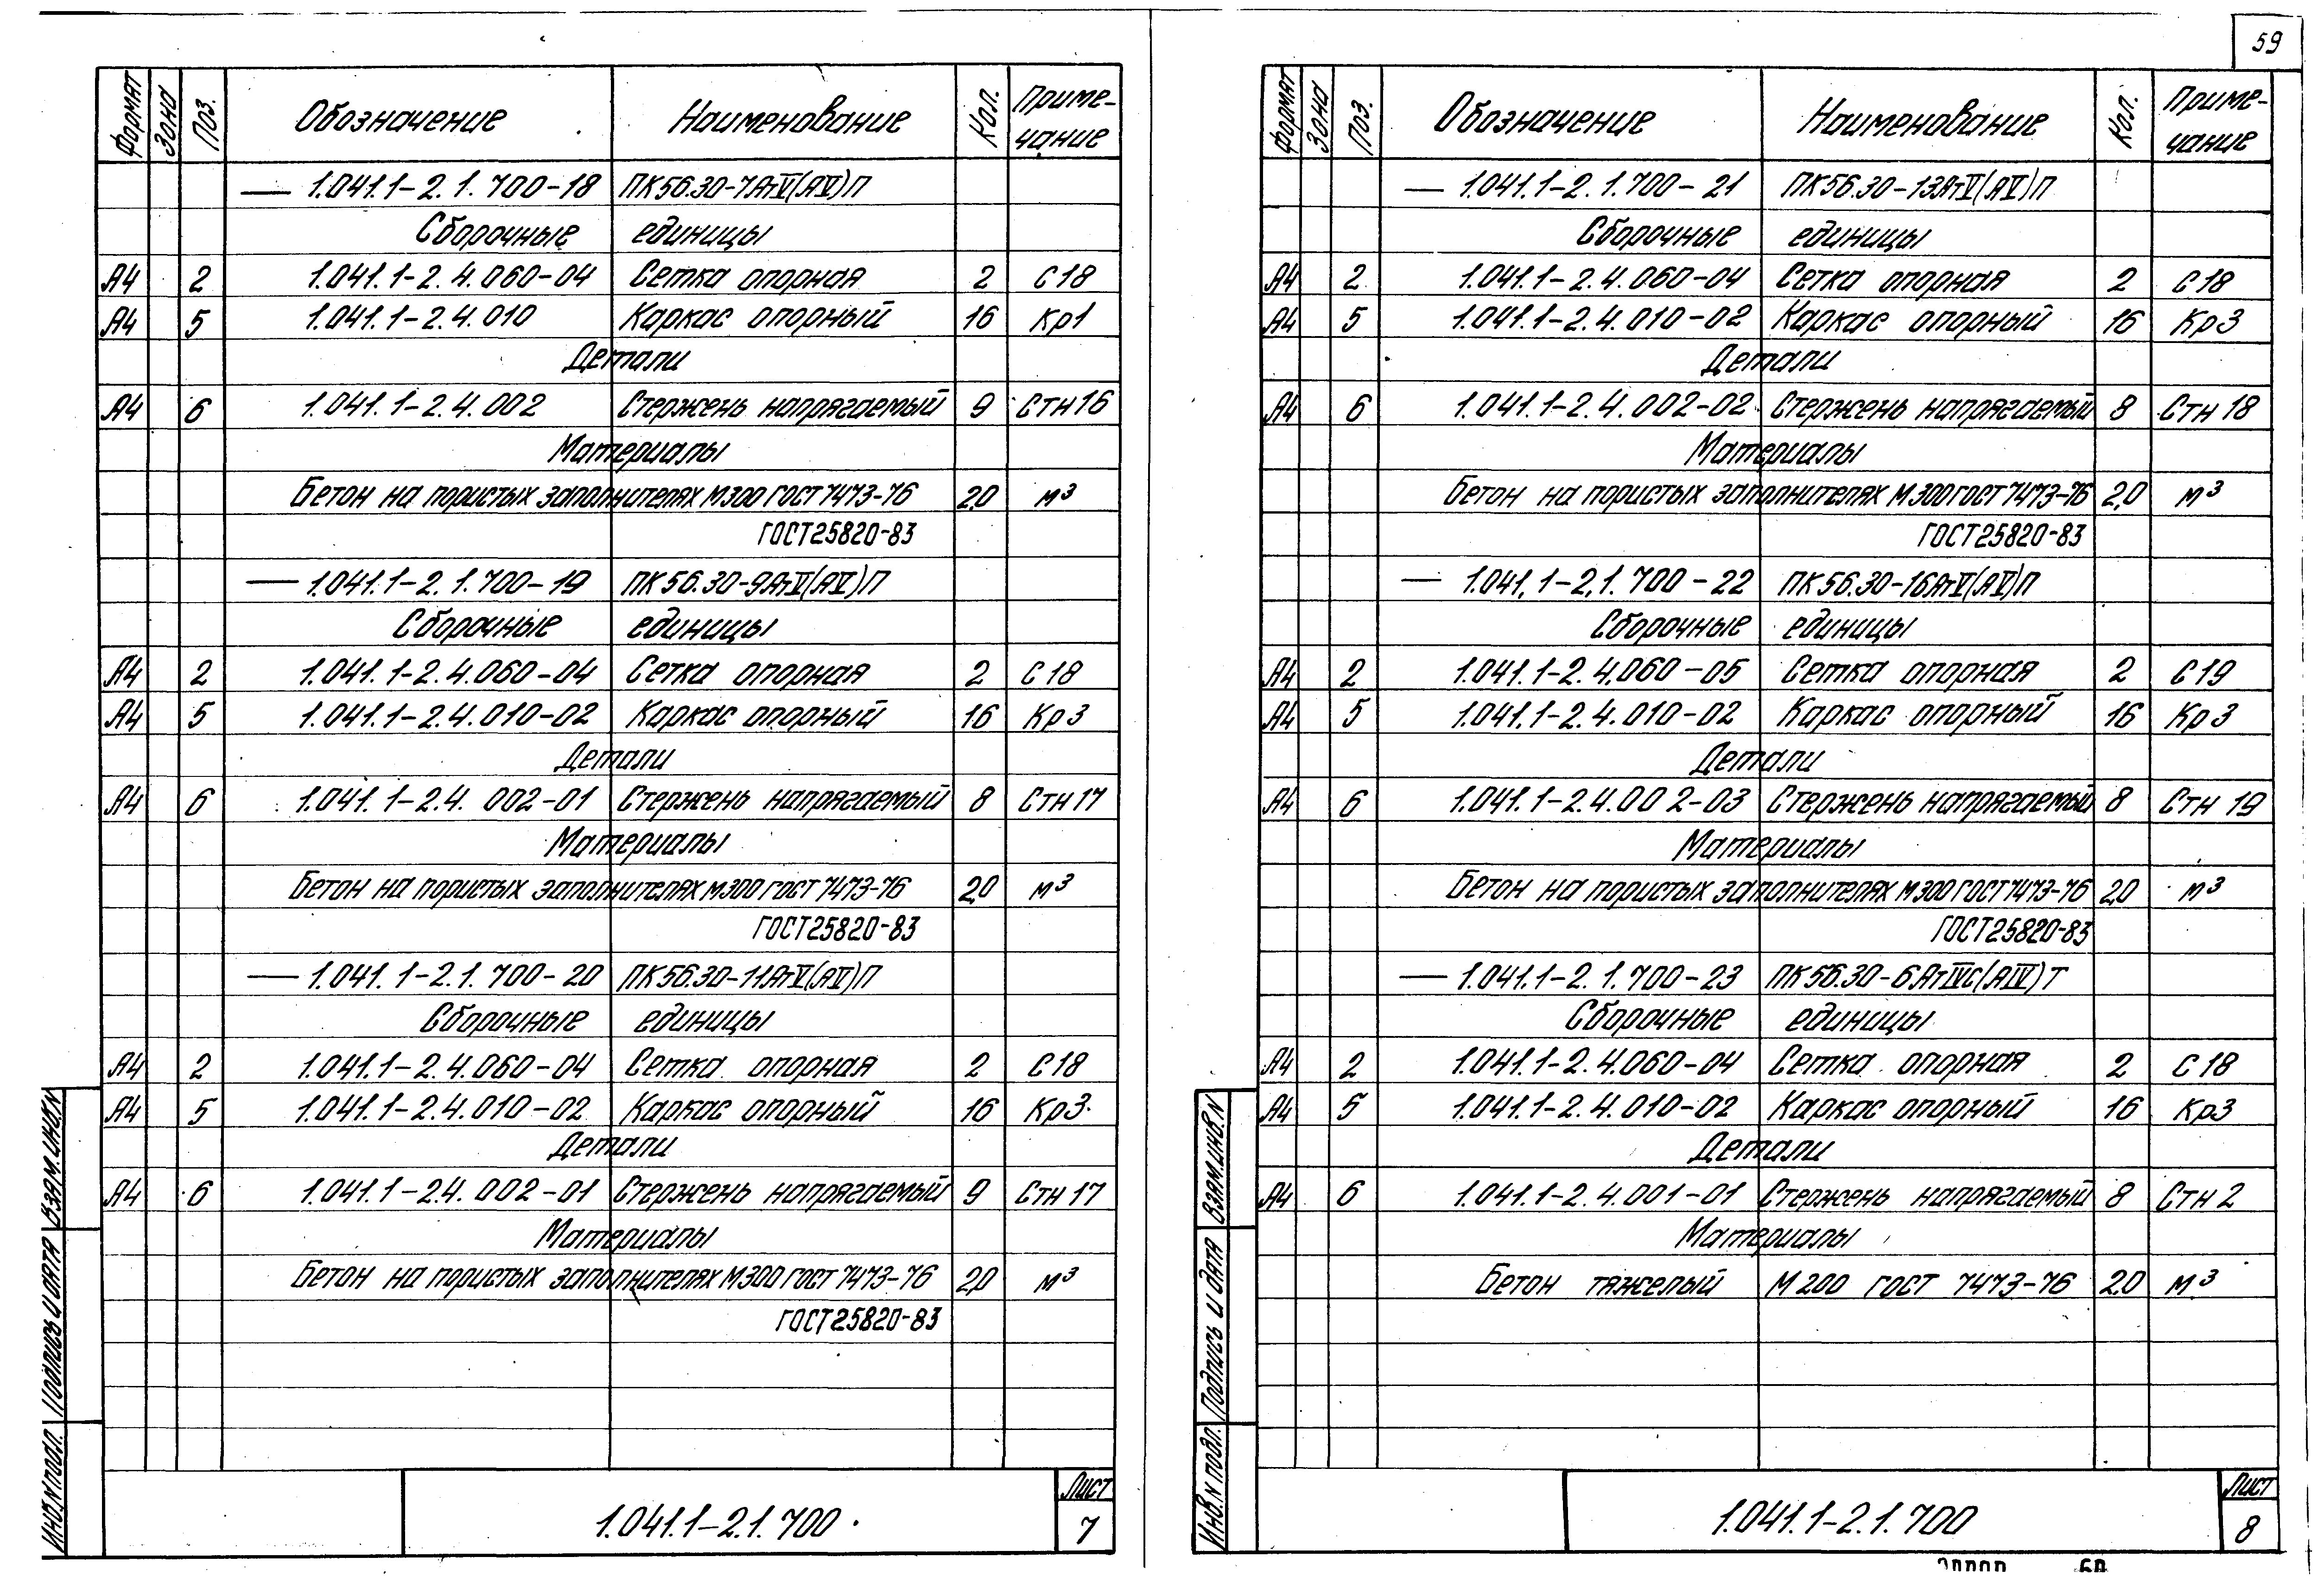 59
Формат Зона Поз. Обозначение Наименование Кол. Приме-
чание
— 1.041.1-2.1.700-18 ПК56.30-7АтV(АV)П
Сборочные единицы
А4 2 1.041.1-2.4.060-04 Сетка опорная 2 С18
А4 5 1.041.1-2.4.010 Каркас опорный 16 Кр1
Детали
А4 6 1.041.1-2.4.002 Стержень напрягаемый 9 Стн16
Материалы
Бетон на пористых заполнителях М300 ГОСТ 7473-76 2,0 м³
ГОСТ25820-83
— 1.041.1-2.1.700-19 ПК56.30-9АтV(АV)П
Сборочные единицы
А4 2 1.041.1-2.4.060-04 Сетка опорная 2 С18
А4 5 1.041.1-2.4.010-02 Каркас опорный 16 Кр3
Детали
А4 6 1.041.1-2.4.002-01 Стержень напрягаемый 8 Стн17
Материалы
Бетон на пористых заполнителях М300 ГОСТ 7473-76 2,0 м³
ГОСТ25820-83
— 1.041.1-2.1.700-20 ПК56.30-11АтV(АV)П
Сборочные единицы
А4 2 1.041.1-2.4.060-04 Сетка опорная 2 С18
А4 5 1.041.1-2.4.010-02 Каркас опорный 16 Кр3
Детали
А4 6 1.041.1-2.4.002-01 Стержень напрягаемый 9 Стн17
Материалы
Бетон на пористых заполнителях М300 ГОСТ 7473-76 2,0 м³
ГОСТ25820-83
Инв.N подл. Подпись и дата Взам.инв.N
1.041.1-2.1.700
Лист
7
Формат Зона Поз. Обозначение Наименование Кол. Приме-
чание
— 1.041.1-2.1.700-21 ПК56.30-13АтV(АV)П
Сборочные единицы
А4 2 1.041.1-2.4.060-04 Сетка опорная 2 С18
А4 5 1.041.1-2.4.010-02 Каркас опорный 16 Кр3
Детали
А4 6 1.041.1-2.4.002-02 Стержень напрягаемый 8 Стн18
Материалы
Бетон на пористых заполнителях М300 ГОСТ 7473-76 2,0 м³
ГОСТ25820-83
— 1.041.1-2.1.700-22 ПК56.30-16АтV(АV)П
Сборочные единицы
А4 2 1.041.1-2.4.060-05 Сетка опорная 2 С19
А4 5 1.041.1-2.4.010-02 Каркас опорный 16 Кр3
Детали
А4 6 1.041.1-2.4.002-03 Стержень напрягаемый 8 Стн19
Материалы
Бетон на пористых заполнителях М300 ГОСТ 7473-76 2,0 м³
ГОСТ25820-83
— 1.041.1-2.1.700-23 ПК56.30-6АтIVС(АIV)Т
Сборочные единицы
А4 2 1.041.1-2.4.060-04 Сетка опорная 2 С18
А4 5 1.041.1-2.4.010-02 Каркас опорный 16 Кр3
Детали
А4 6 1.041.1-2.4.001-01 Стержень напрягаемый 8 Стн2
Материалы
Бетон тяжелый М200 ГОСТ 7473-76 2,0 м³
Инв.N подл. Подпись и дата Взам.инв.N
1.041.1-2.1.700
Лист
8